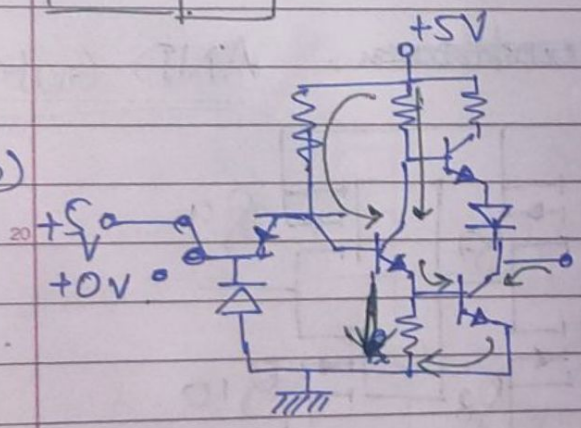 +5V
)
20
+5V
+0V